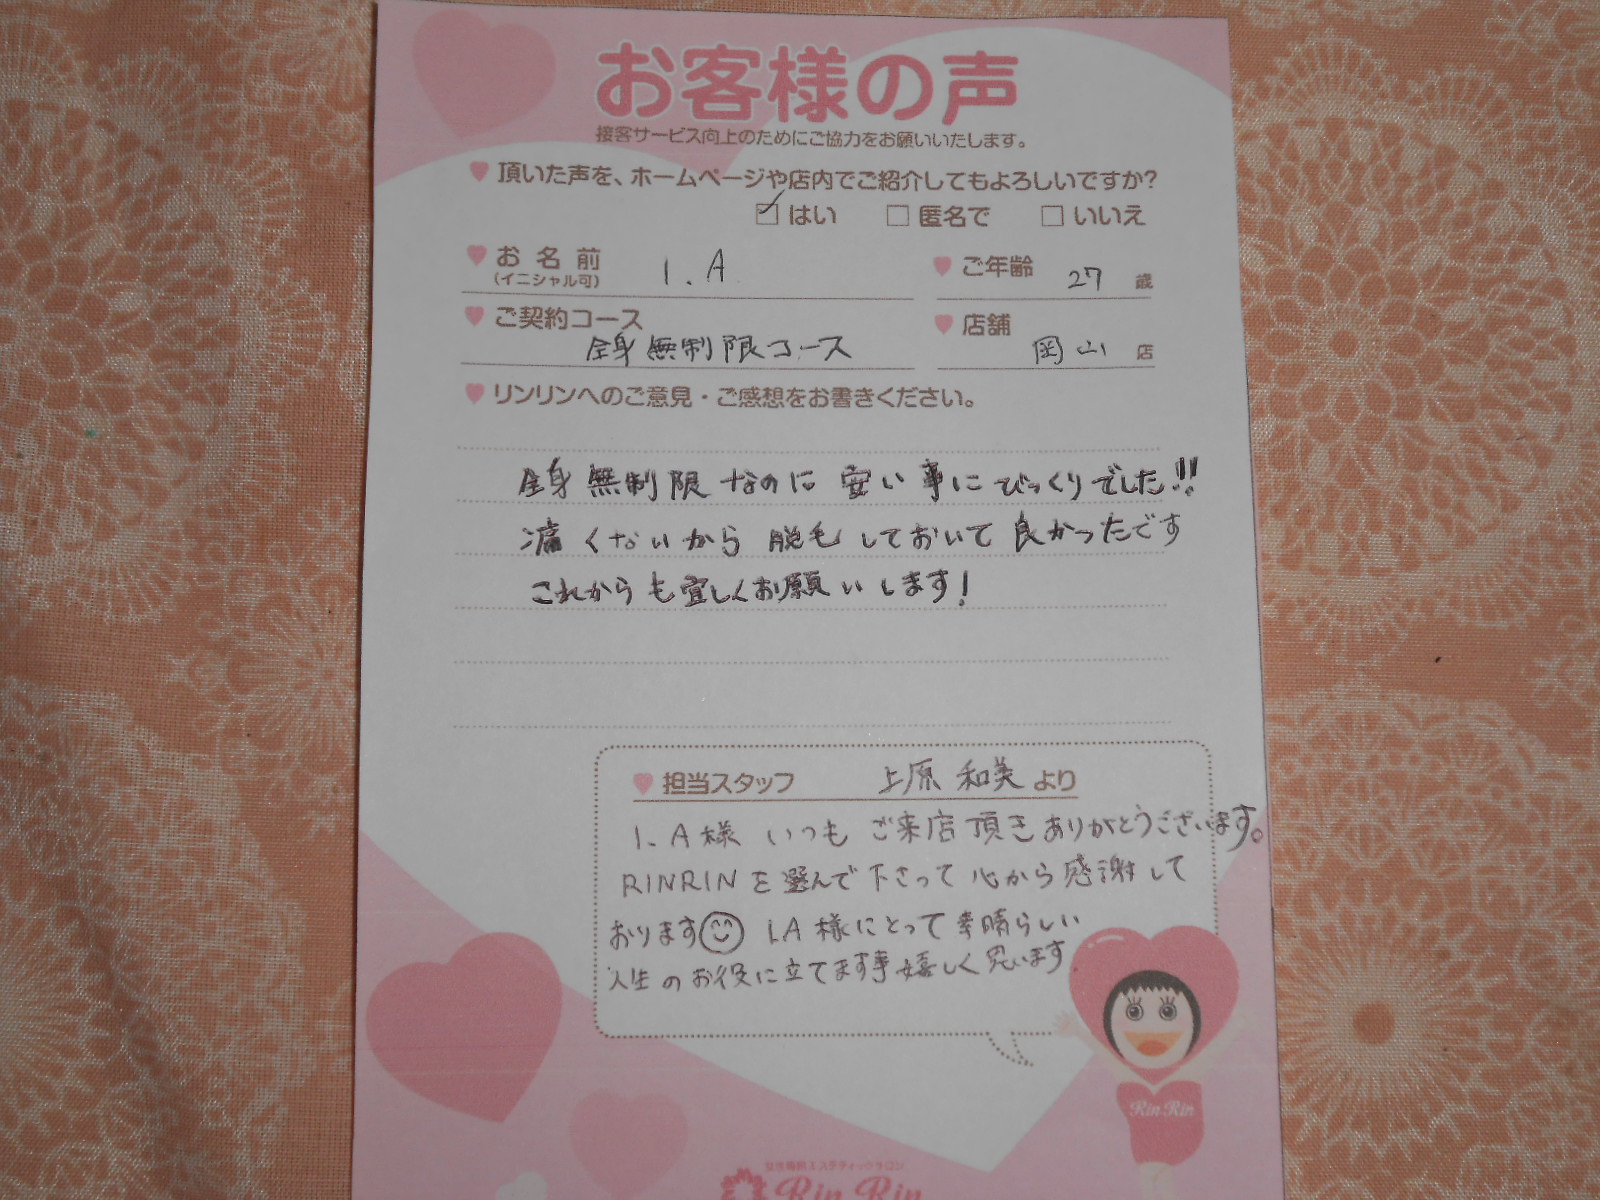 お客様の声
接客サービス向上のためにご協力をお願いいたします。
頂いた声を、ホームページや店内でご紹介してもよろしいですか?
はい 匿名で いいえ
お名前 I.A ご年齢 27 歳
(イニシャル可)
ご契約コース 全身無制限コース 店舗 岡山 店
リンリンへのご意見・ご感想をお書きください。
全身無制限なのに安い事にびっくりでした!!
痛くないから脱毛しておいて良かったです
これからも宜しくお願いします!
担当スタッフ 上原 和美 より
I.A様 いつもご来店頂きありがとうございます。
RINRINを選んで下さって心から感謝して
おります I.A様にとって素晴らしい
人生のお役に立てます事嬉しく思います
Rin Rin
Rin Rin